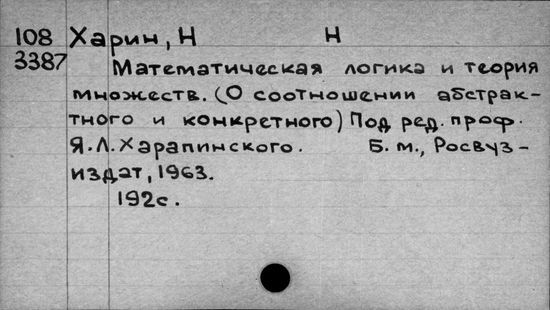 108 Харин, Н Н
3387 Математическая логика и теория
множеств. (О соотношении абстрак-
тного и конкретного) Под ред. проф.
Я.Л. Харапинского. Б.м., Росвуз-
издат, 1963.
192с.